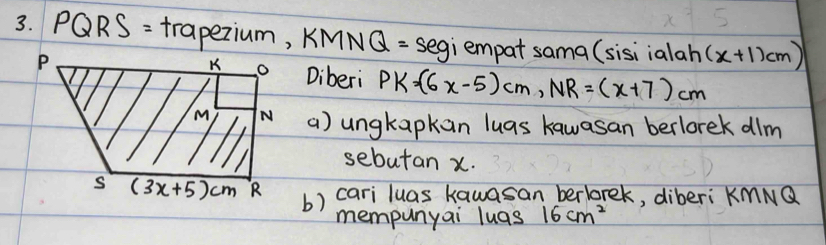 3. PQRS = trapezium, KMNQ = segi empat sama (sisi ialah (x+1)cm)
P K Q
Diberi PK=(6x-5)cm, NR=(x+7)cm
M N
a) ungkapkan luas kawasan berlorek dlm
sebutan x.
S (3x+5)cm R
b) cari luas kawasan berlorek, diberi KMNQ
mempunyai luas 16cm²